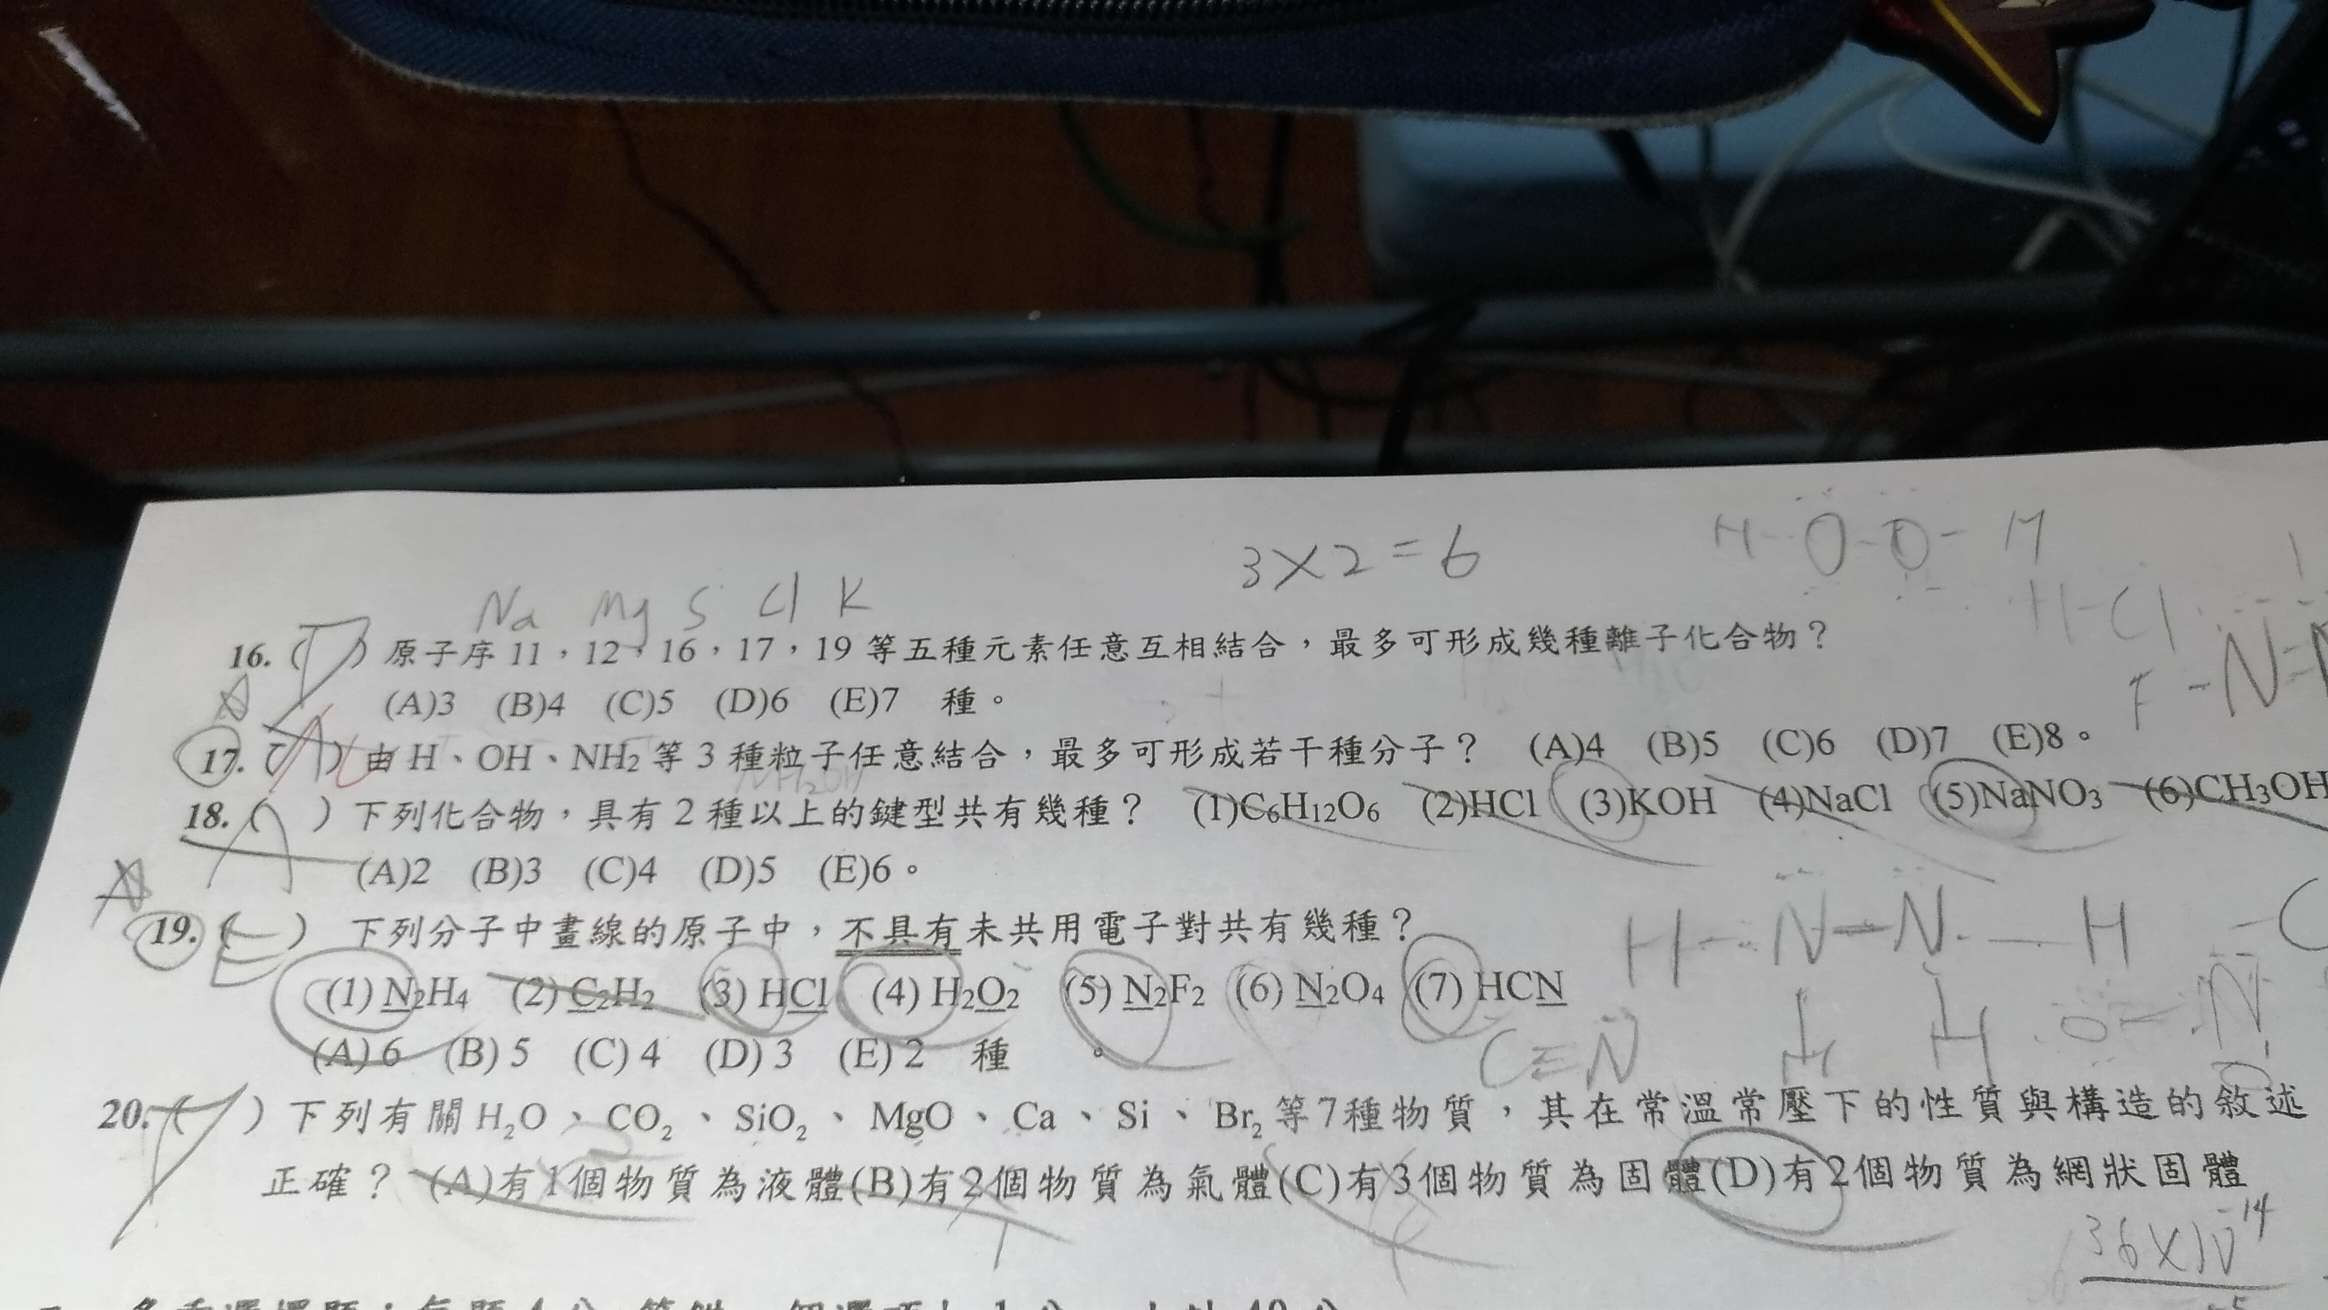 3×2=6
H-O-O-H
H-Cl
Na Mg S Cl K
16. ( ) 原子序 11，12，16，17，19 等五種元素任意互相結合，最多可形成幾種離子化合物？
F-N=N
(A)3 (B)4 (C)5 (D)6 (E)7 種。
17. ( ) 由 H、OH、NH₂ 等 3 種粒子任意結合，最多可形成若干種分子？ (A)4 (B)5 (C)6 (D)7 (E)8。
18. ( ) 下列化合物，具有 2 種以上的鍵型共有幾種？ (1)C₆H₁₂O₆ (2)HCl (3)KOH (4)NaCl (5)NaNO₃ (6)CH₃OH
(A)2 (B)3 (C)4 (D)5 (E)6。
19. ( ) 下列分子中畫線的原子中，不具有未共用電子對共有幾種？
H-N-N-H
(1) N₂H₄ (2) C₂H₂ (3) HCl (4) H₂O₂ (5) N₂F₂ (6) N₂O₄ (7) HCN
(A) 6 (B) 5 (C) 4 (D) 3 (E) 2 種。
C≡N H H
20. ( ) 下列有關 H₂O、CO₂、SiO₂、MgO、Ca、Si、Br₂ 等7種物質，其在常溫常壓下的性質與構造的敘述
正確？ (A)有1個物質為液體(B)有2個物質為氣體(C)有3個物質為固體(D)有2個物質為網狀固體
36×10⁻¹⁴